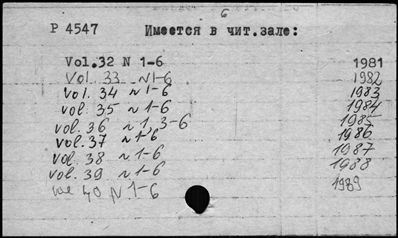 6
P 4547 Имеется в чит.зале:
Vol.32 N 1-6 1981
Vol. 33 N1-6 1982
vol. 34 N 1-6 1983
vol. 35 N 1-6 1984
vol. 36 N 1, 3-6 1985
vol. 37 N 1-6 1986
vol. 38 N 1-6 1987
vol. 39 N 1-6 1988
vol 40 N 1-6 1989